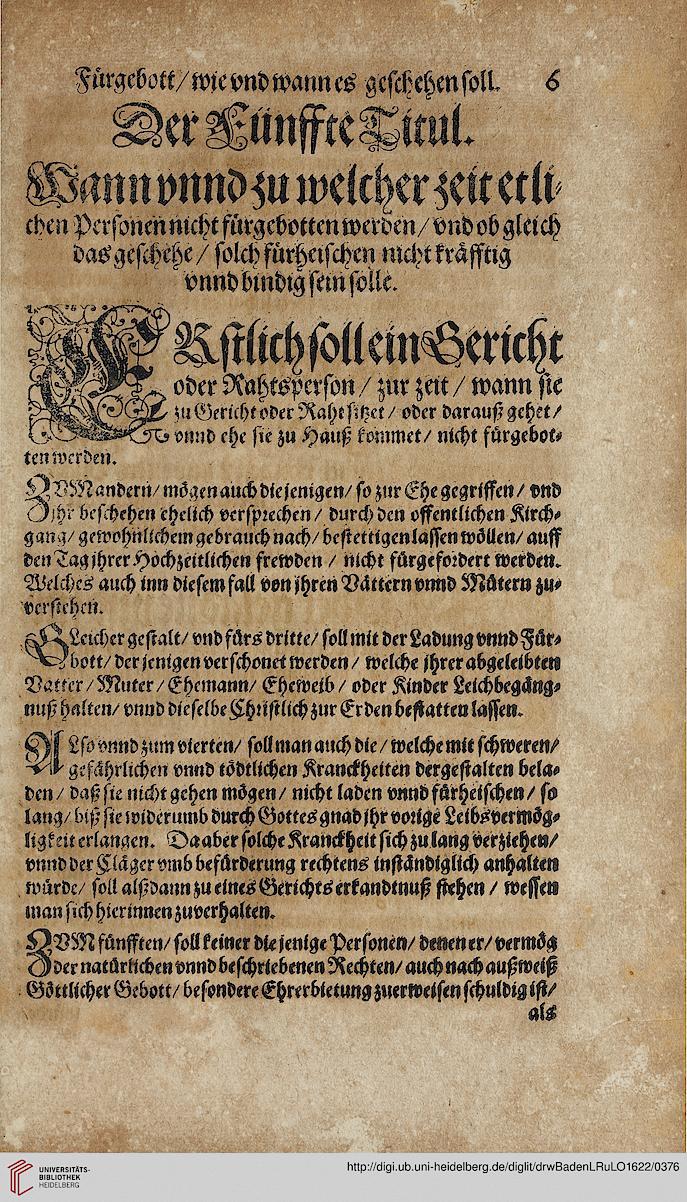 Fürgebott/ wie vnd wann es geschehen soll. 6
Der Fünffte Titul.
Wann vnnd zu welcher zeit etli-
chen Personen nicht fürgebotten werden/ vnd ob gleich
das geschehe/ solch fürheischen nicht kräfftig
vnnd bindig sein solle.
ERstlich soll ein Gericht
oder Rahtsperson/ zur zeit/ wann sie
zu Gericht oder Raht sitzet/ oder darauß gehet/
vnnd ehe sie zu Hauß kommet/ nicht fürgebot-
ten werden.
ZVM andern/ mögen auch die jenigen/ so zur Ehe gegriffen/ vnd
jhr beschehen ehelich versprechen/ durch den offentlichen Kirch-
gang/ gewohnlichem gebrauch nach/ bestettigen lassen wöllen/ auff
den Tag jhrer Hochzeitlichen frewden/ nicht fürgefordert werden.
Welches auch inn diesem fall von jhren Vättern vnnd Mütern zu-
verstehen.
GLeicher gestalt/ vnd fürs dritte/ soll mit der Ladung vnnd Für-
bott/ der jenigen verschonet werden/ welche jhrer abgeleibten
Vatter/ Muter/ Ehemann/ Eheweib/ oder Kinder Leichbegäng-
nuß halten/ vnnd dieselbe Christlich zur Erden bestatten lassen.
ALso vnnd zum vierten/ soll man auch die/ welche mit schweren/
gefährlichen vnnd tödtlichen Kranckheiten dergestalten bela-
den/ daß sie nicht gehen mögen/ nicht laden vnnd fürheischen/ so
lang/ biß sie widerumb durch Gottes gnad jhr vorige Leibsvermög-
ligkeit erlangen. Da aber solche Kranckheit sich zu lang verziehen/
vnnd der Cläger vmb befürderung rechtens inständiglich anhalten
würde/ soll alßdann zu eines Gerichts erkandtnuß stehen/ wessen
man sich hierinnen zuverhalten.
ZVM fünfften/ soll keiner die jenige Personen/ denen er/ vermög
der natürlichen vnnd beschriebenen Rechten/ auch nach außweiß
Göttlicher Gebott/ besondere Ehrerbietung zuerweisen schuldig ist/
als
UNIVERSITÄTS-
BIBLIOTHEK
HEIDELBERG
http://digi.ub.uni-heidelberg.de/diglit/drwBadenLRuLO1622/0376